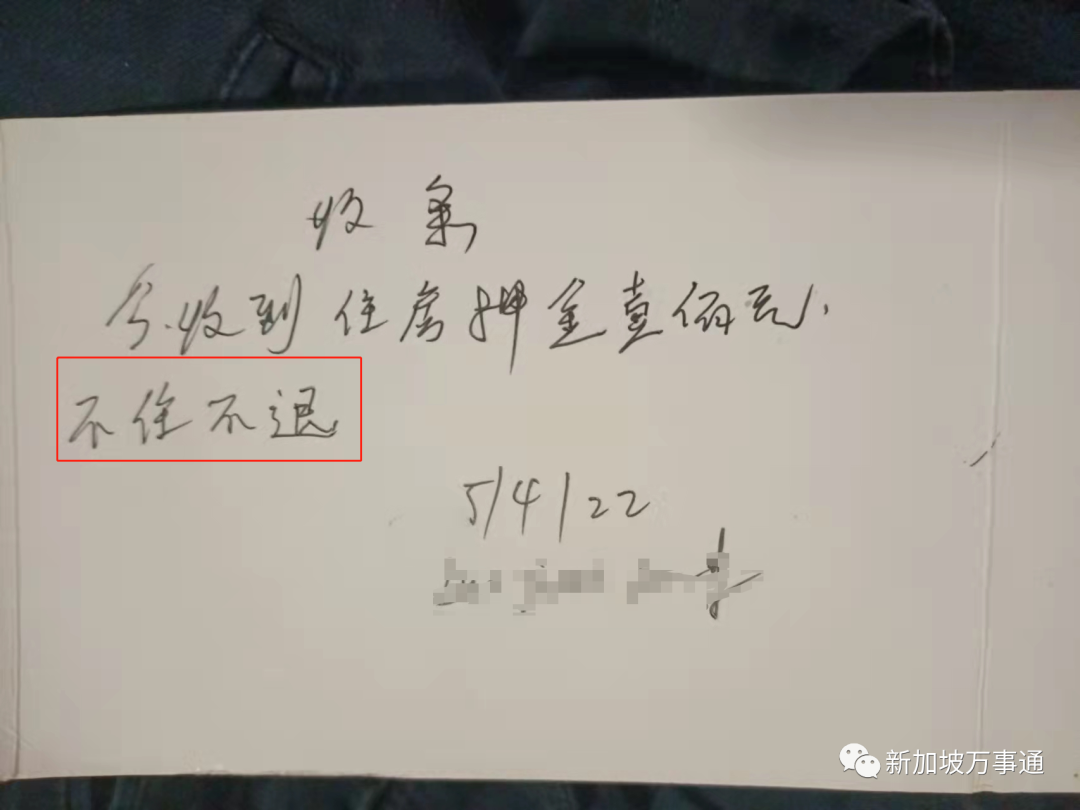 收条
今收到住房押金壹佰元.
不住不退
5/4/22
新加坡万事通